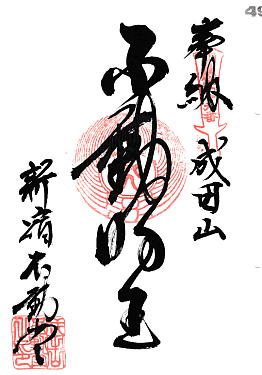 奉納 成田山
不動明王
新宿不動堂